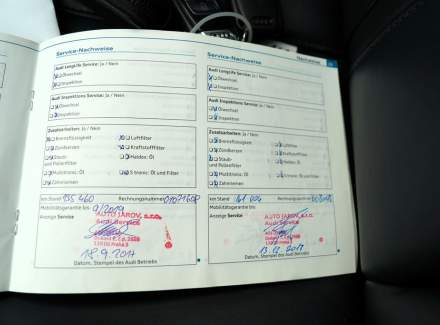 Service-Nachweise
Audi LongLife Service: Ja / Nein
Ölwechsel
Inspektion
Audi Inspektions Service: Ja / Nein
Ölwechsel
Inspektion
Zusatzarbeiten: Ja / Nein
Bremsflüssigkeit
Luftfilter
Zündkerzen
Kraftstofffilter
Staub- und Pollenfilter
Haldex: Öl
Multitronic: Öl
S tronic: Öl und Filter
Zahnriemen
km Stand: 135 460
Rechnungsnummer:
Mobilitätsgarantie bis: 9/2019
Anzeige Service
AUTO JAROV, s.r.o.
Audi Service
130 00 Praha 3
18.9.2017
Datum, Stempel des Audi Betriebs
Service-Nachweise
Nachweise
Audi LongLife Service: Ja / Nein
Ölwechsel
Inspektion
Audi Inspektions Service: Ja / Nein
Ölwechsel
Inspektion
Zusatzarbeiten: Ja / Nein
Bremsflüssigkeit
Luftfilter
Zündkerzen
Kraftstofffilter
Staub- und Pollenfilter
Haldex: Öl
Multitronic: Öl
S tronic: Öl und Filter
Zahnriemen
km Stand:
Rechnungsnummer:
Mobilitätsgarantie bis:
Anzeige Service
AUTO JAROV, s.r.o.
Audi Service
130 00 Praha 3
13.12.2017
Datum, Stempel des Audi Betriebs